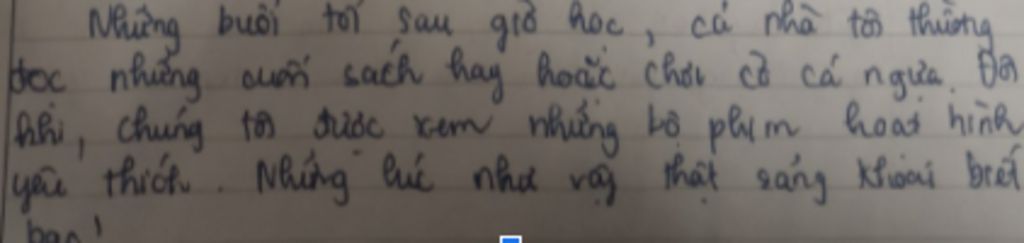 Những buổi tối sau giờ học, cả nhà tôi thường
đọc những cuốn sách hay hoặc chơi cờ cá ngựa. Đôi
khi, chúng tôi được xem những bộ phim hoạt hình
yêu thích. Những lúc như vậy thật sảng khoái biết
bao!